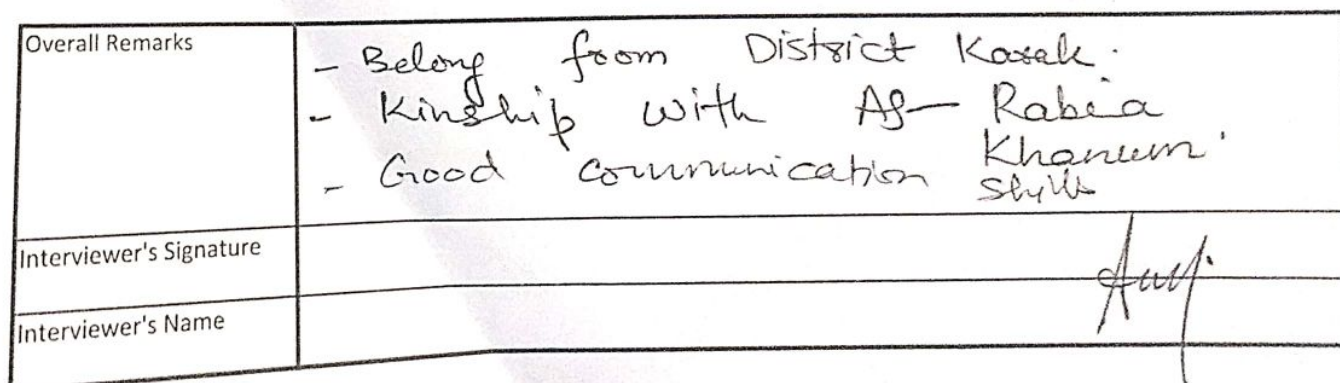 Overall Remarks
- Belong from District Karak.
- Kinship with AS- Rabia
Khanum.
- Good communication skills
Interviewer's Signature
Interviewer's Name